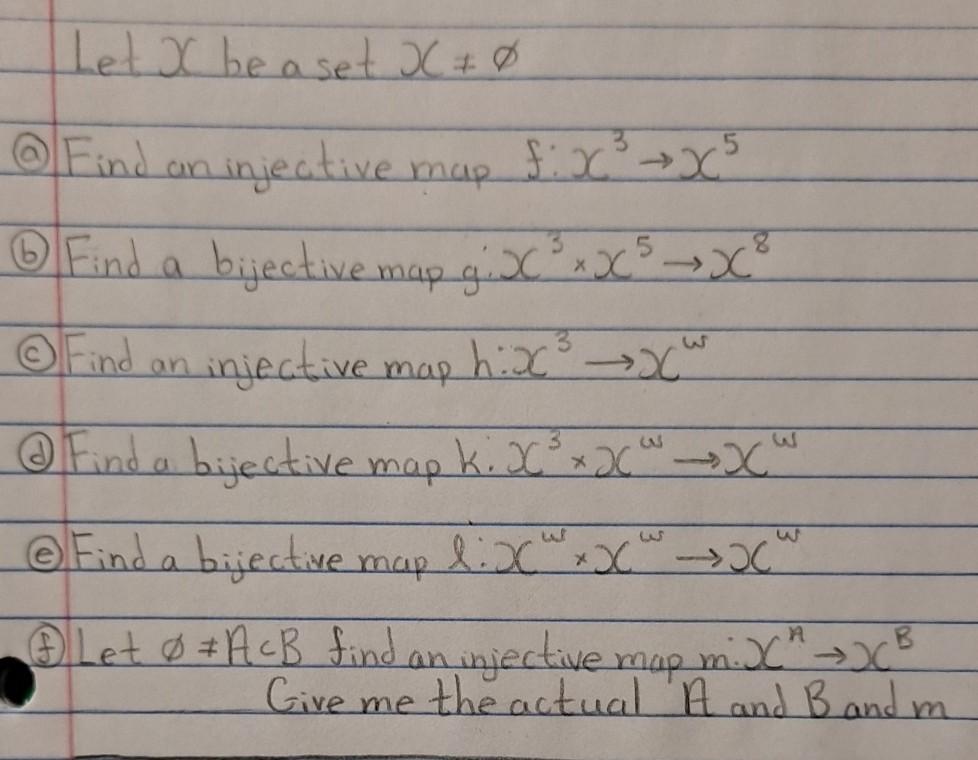 Let X be a set X ≠ ∅
ⓐ Find an injective map f: X³ → X⁵
ⓑ Find a bijective map g: X³ × X⁵ → X⁸
ⓒ Find an injective map h: X³ → X^w
ⓓ Find a bijective map k: X³ × X^w → X^w
ⓔ Find a bijective map l: X^w × X^w → X^w
ⓕ Let ∅ ≠ A ⊂ B find an injective map m: X^A → X^B
Give me the actual A and B and m